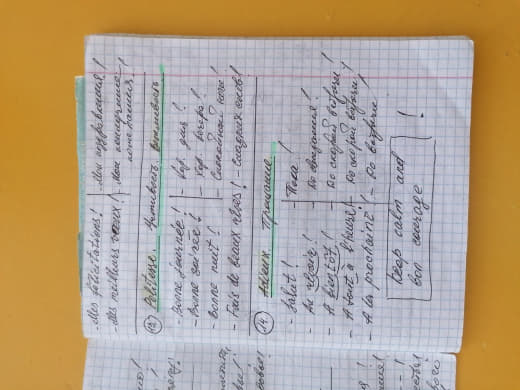 - Mes félicitations! - Мои поздравления!
- Mes meilleurs vœux! - Мои наилучшие пожелания!
13 Politesse. Учтивость, вежливость
- Bonne journée! - Хор. дня!
- Bonne soirée! - Хор. вечера!
- Bonne nuit! - Спокойной ночи!
- Fais de beaux rêves! - Сладких снов!
14 Adieux Прощание
- Salut! - Пока!
- Au revoir! - До свидания!
- A bientôt! - До скорой встречи!
- A tout à l'heure! - До скорой встречи!
- A la prochaine! - До встречи!
Keep calm and
bon courage!